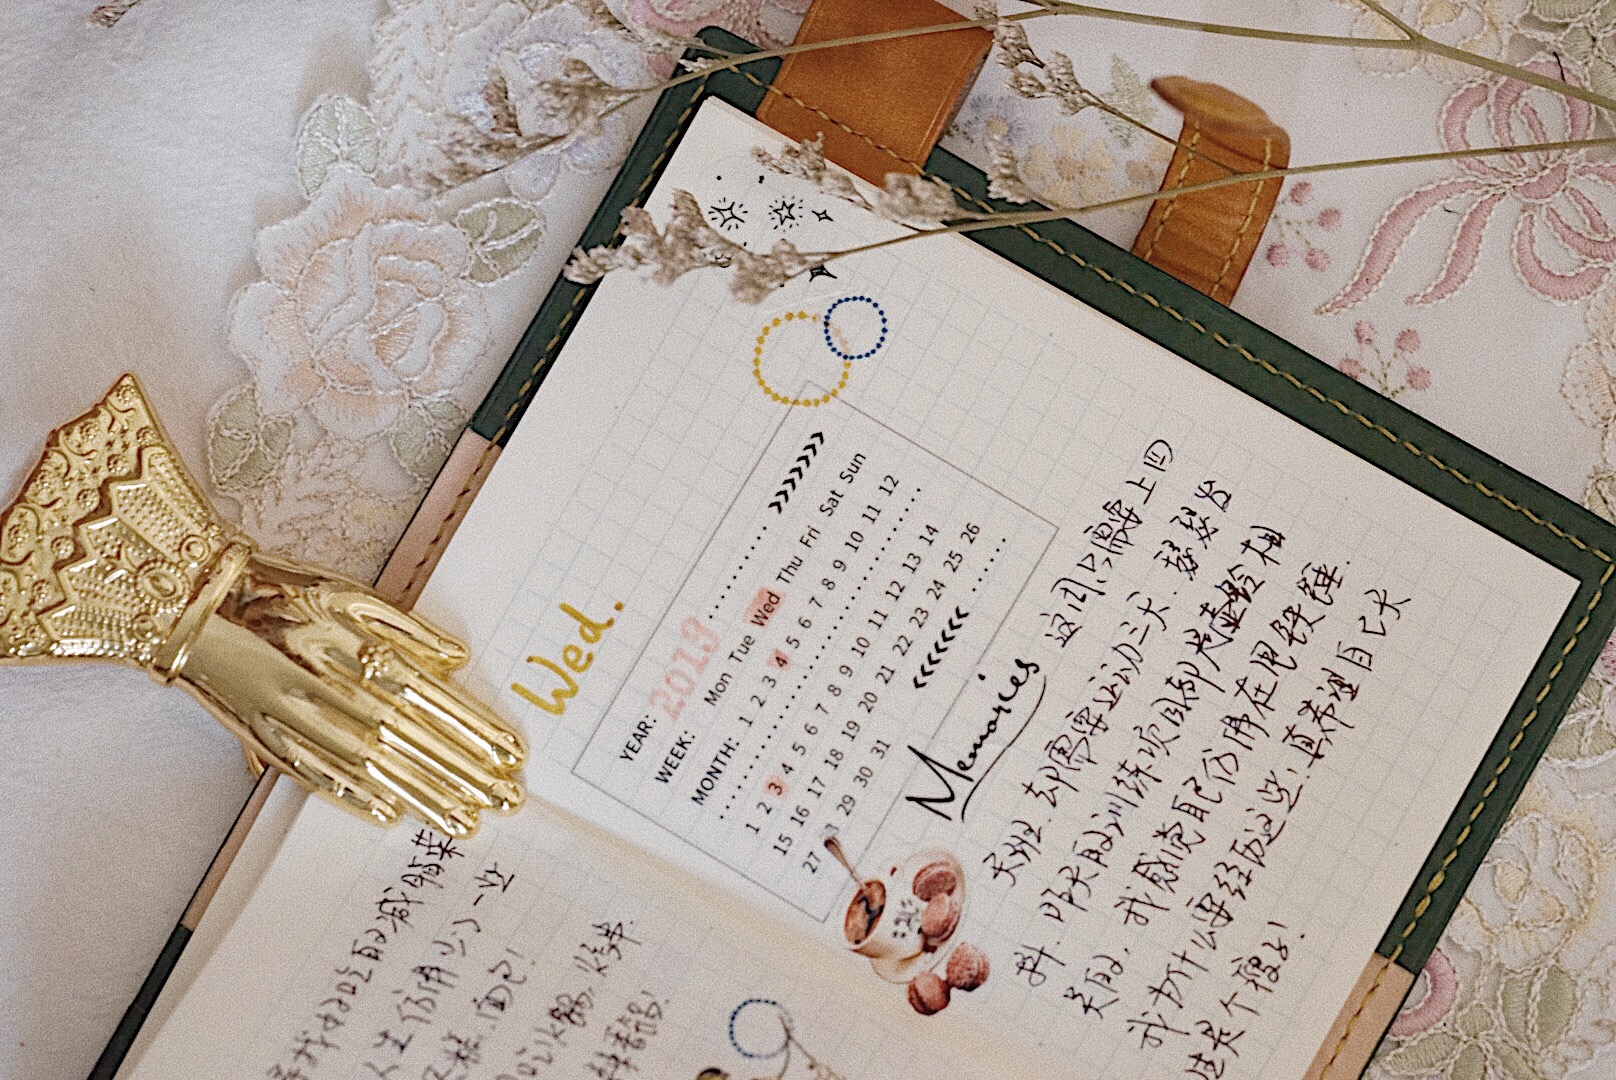 Wed.
YEAR: 2019
WEEK: Mon Tue Wed Thu Fri Sat Sun
MONTH: 1 2 3 4 5 6 7 8 9 10 11 12
1 2 3 4 5 6 7 8 9 10 11 12 13 14
15 16 17 18 19 20 21 22 23 24 25 26
27 29 30 31
Memories
这周只需要上四
天班.却需要运动三天.瑟瑟发
抖.昨天的训练项目都是壶铃相
关的,我感觉自己仿佛在甩铁锤.
我为什么要经历这些!真希望自己天
生是个瘦子!
我中午吃的减脂菜
人生仿佛少了一些
面包!
火锅,